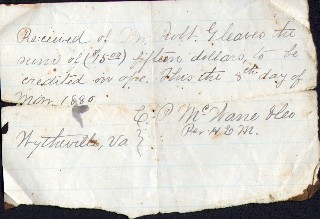 Received of Mr Robt. Gleaves the
sum of ($15.00) fifteen dollars, to be
credited on a/c. This the 8th day of
Mar. 1880
C. P. McWane
Per H. D. M.
Wytheville, Va